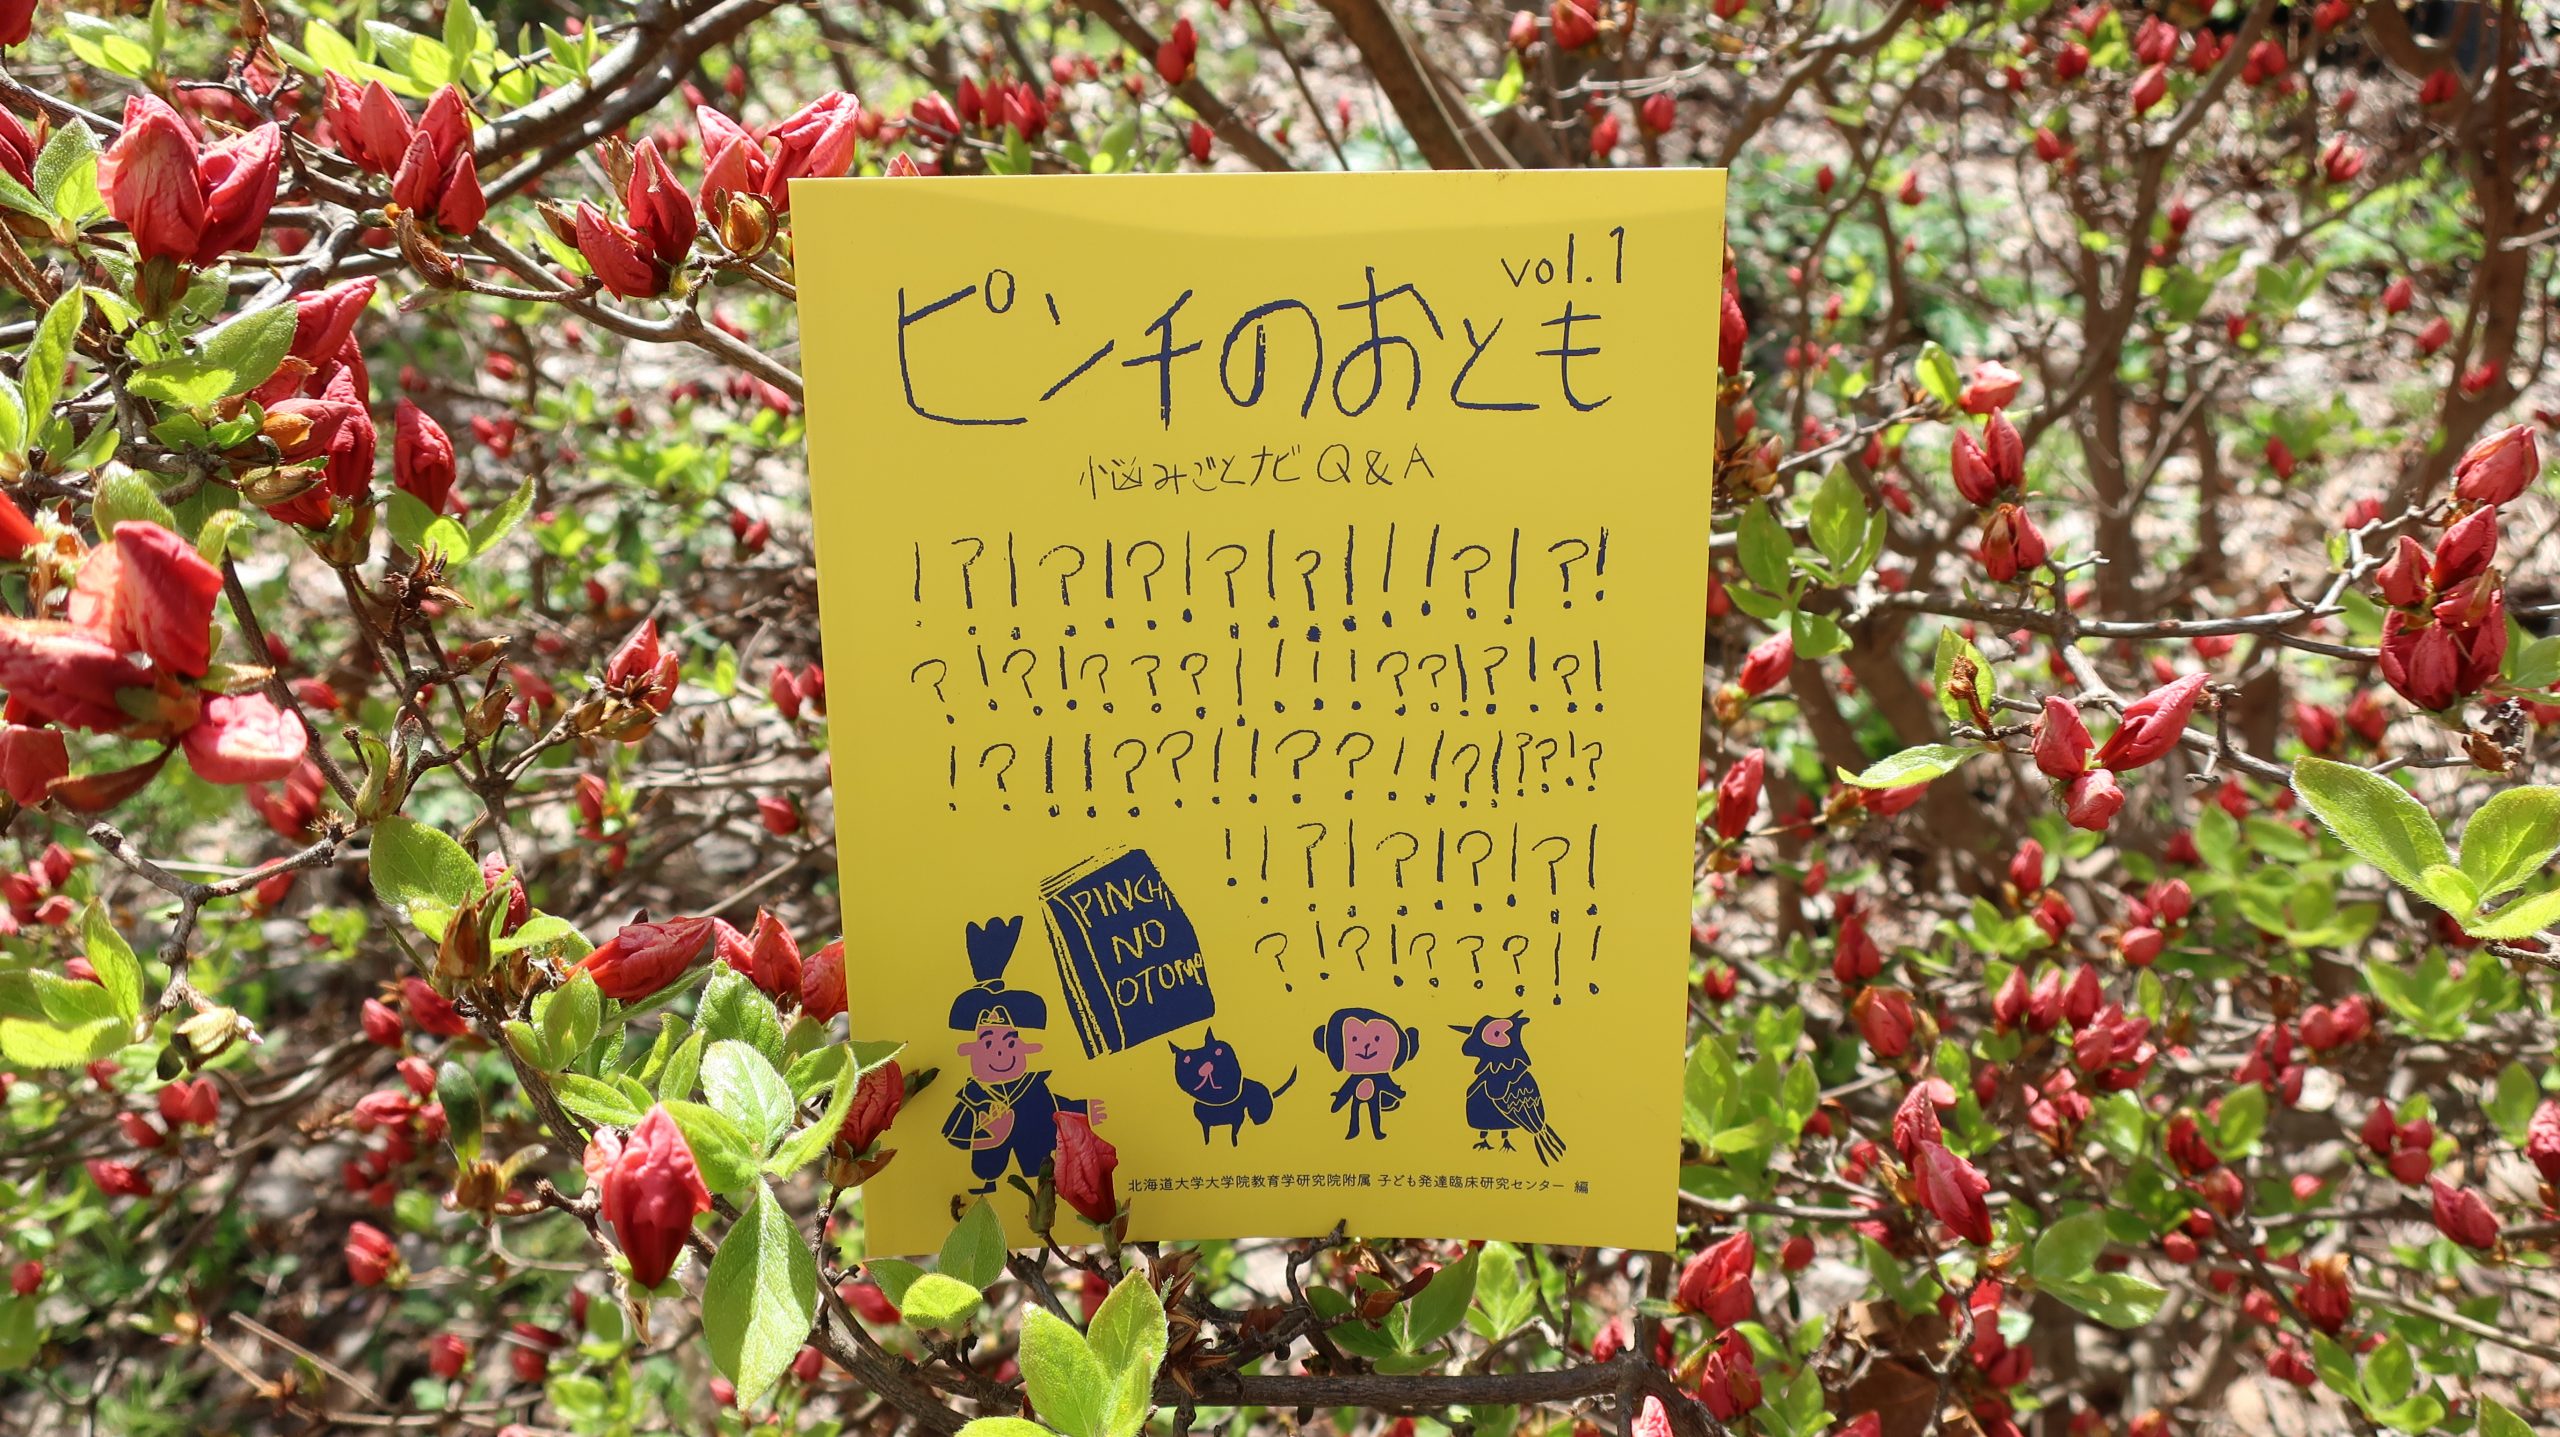 vol.1
ピンチのおとも
悩みごとナビ Q&A
!?!?!?!?!?!!!?!?!
?!?!???!!!!??!?!?!
!?!!??!!??!!?!??!?
!!?!?!?!?!
?!?!???!!
PINCHI
NO
OTOMO
北海道大学大学院教育学研究院附属 子ども発達臨床研究センター 編